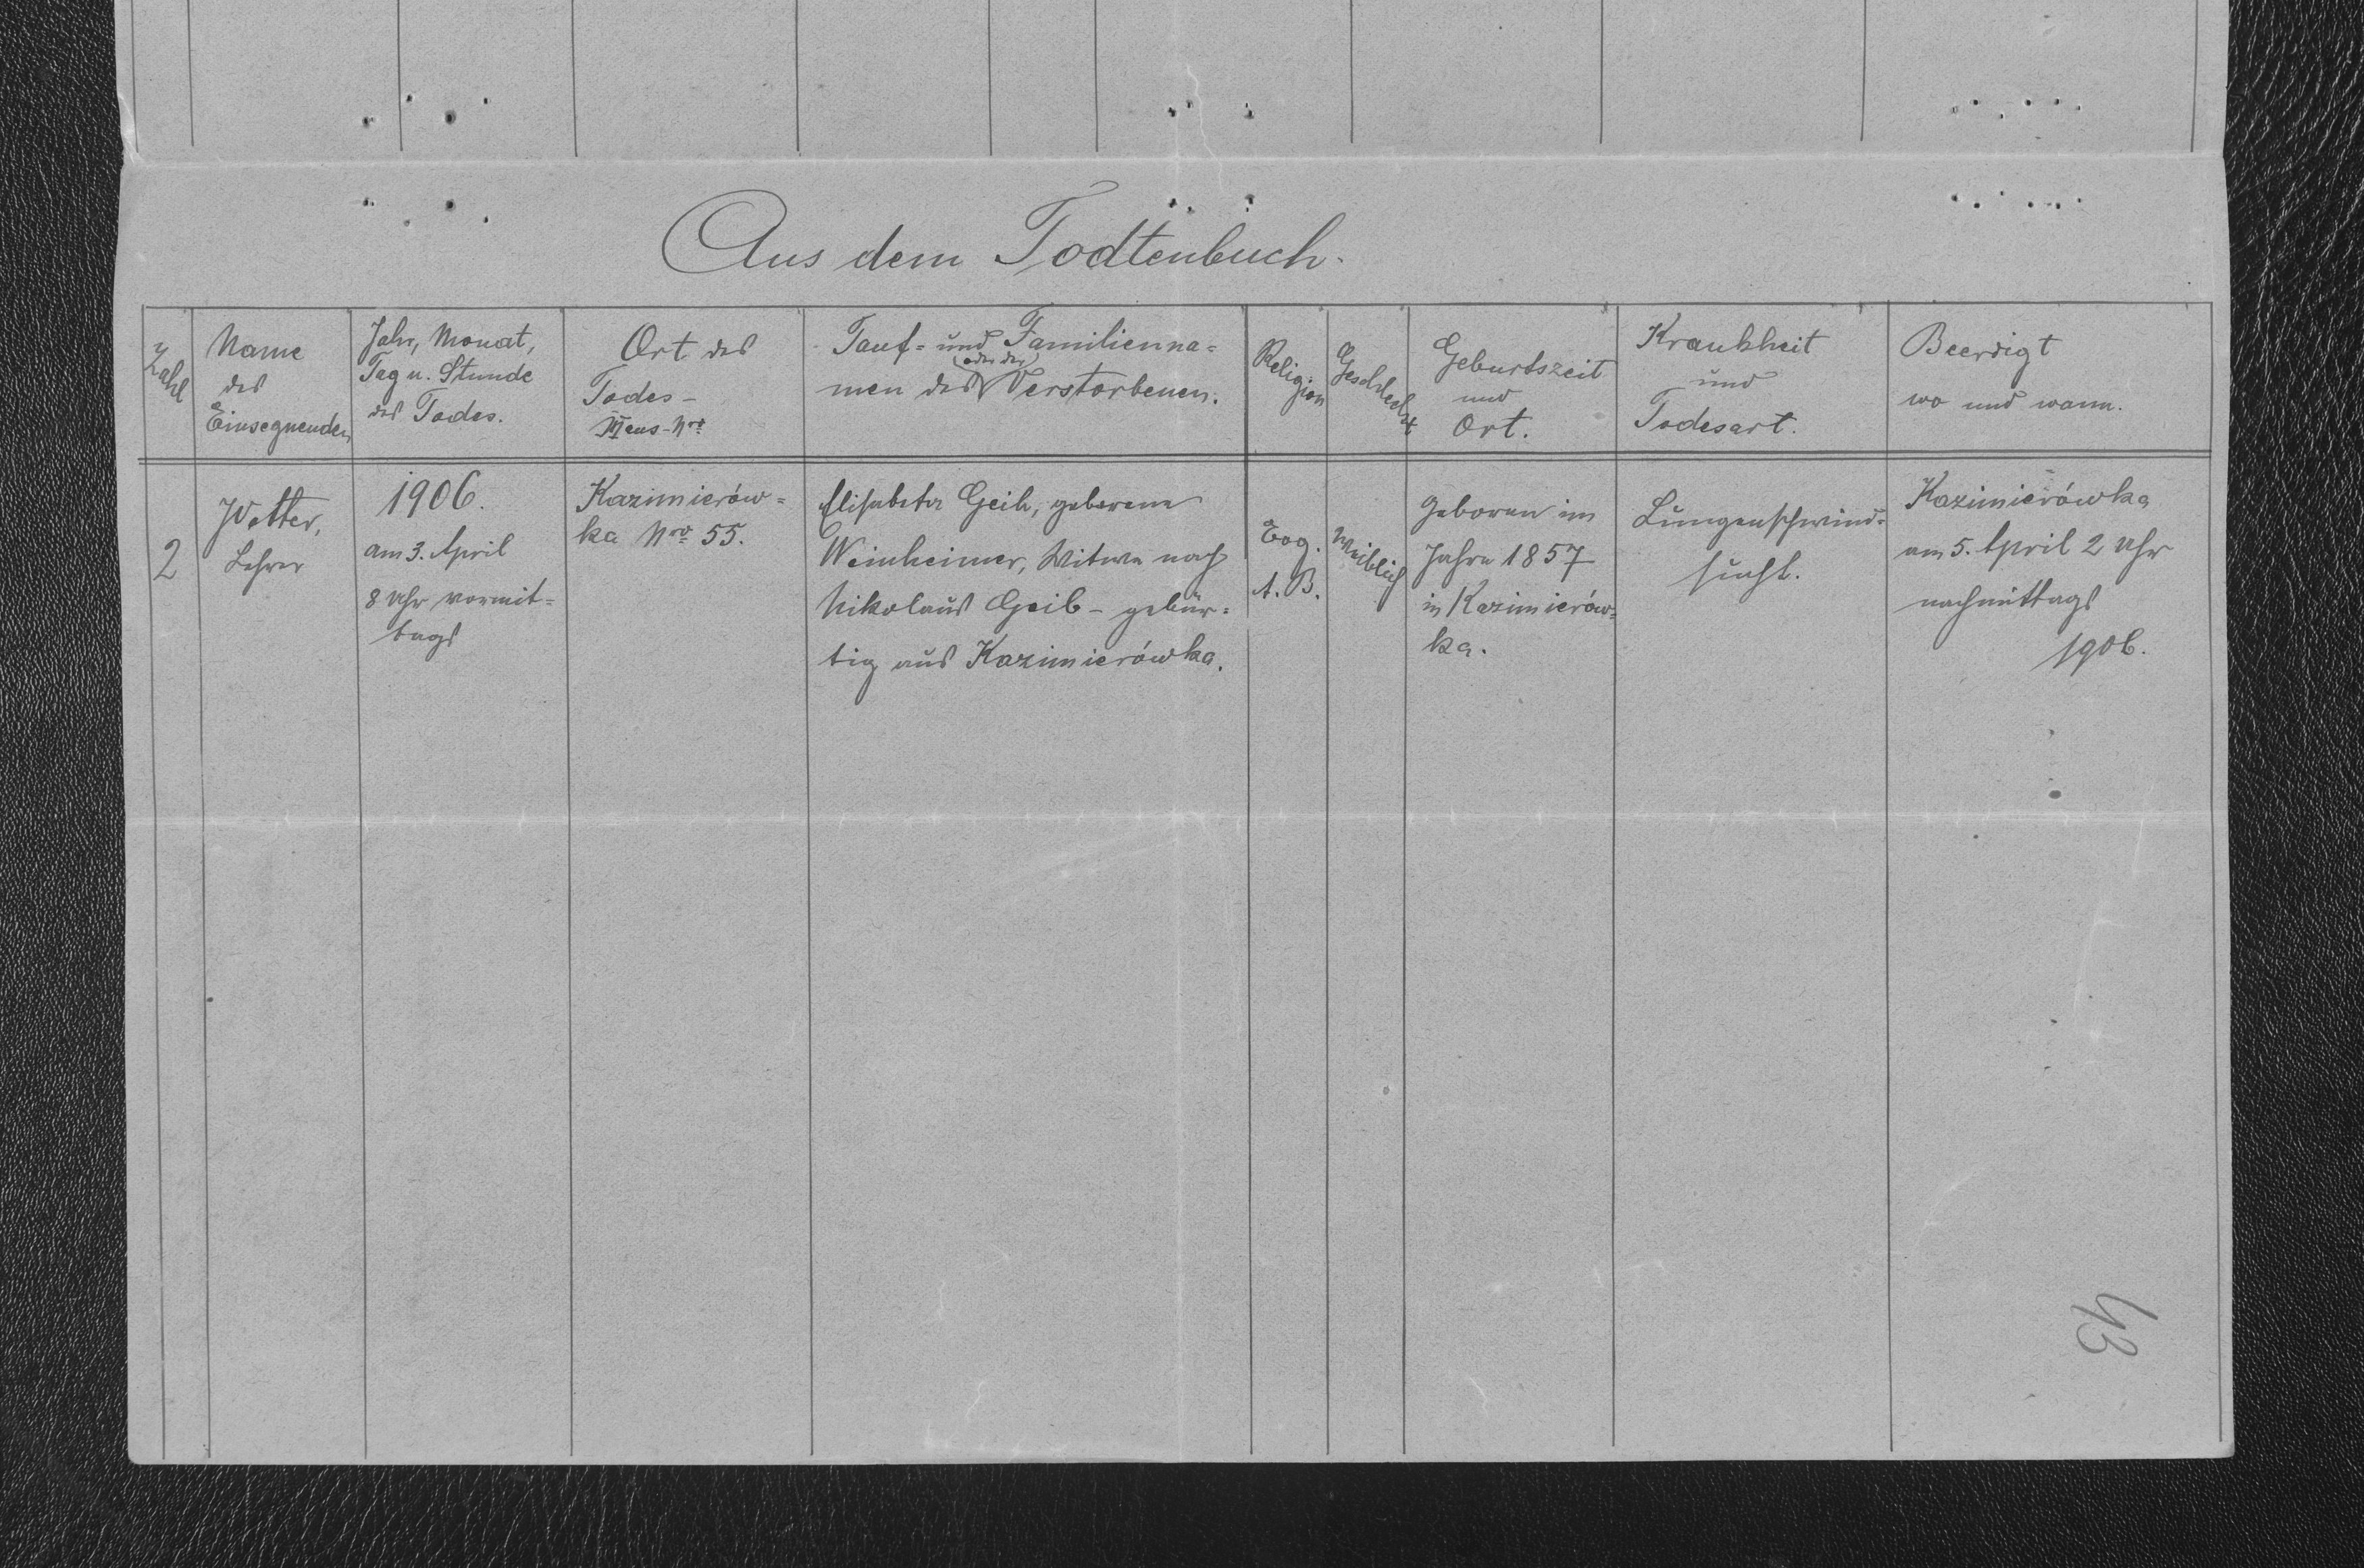 Aus dem Todtenbuch.
Zahl
Name
des
Einsegnenden
Jahr, Monat,
Tag u. Stunde
des Todes.
Ort des
Todes-
Haus-Nro
Tauf- und Familienna-
(oder der)
men des Verstorbenen.
Religion
Geschlecht
Geburtszeit
und
Ort.
Krankheit
und
Todesart.
Beerdigt
wo und wann.
2
Lehrer
1906.
am 3. April
8 Uhr vormit-
tags
Kazimierów-
ka Nro 55.
Elisabeta Geib, geborene
Weinheimer, Witwe nach
Nikolaus Geib - gebür-
tig aus Kazimierówka.
Evg.
A. B.
Weiblich
geboren im
Jahre 1857
in Kazimierów-
ka.
Lungenschwind-
sucht.
Kazimierówka
am 5. April 2 Uhr
nachmittags
1906.
43